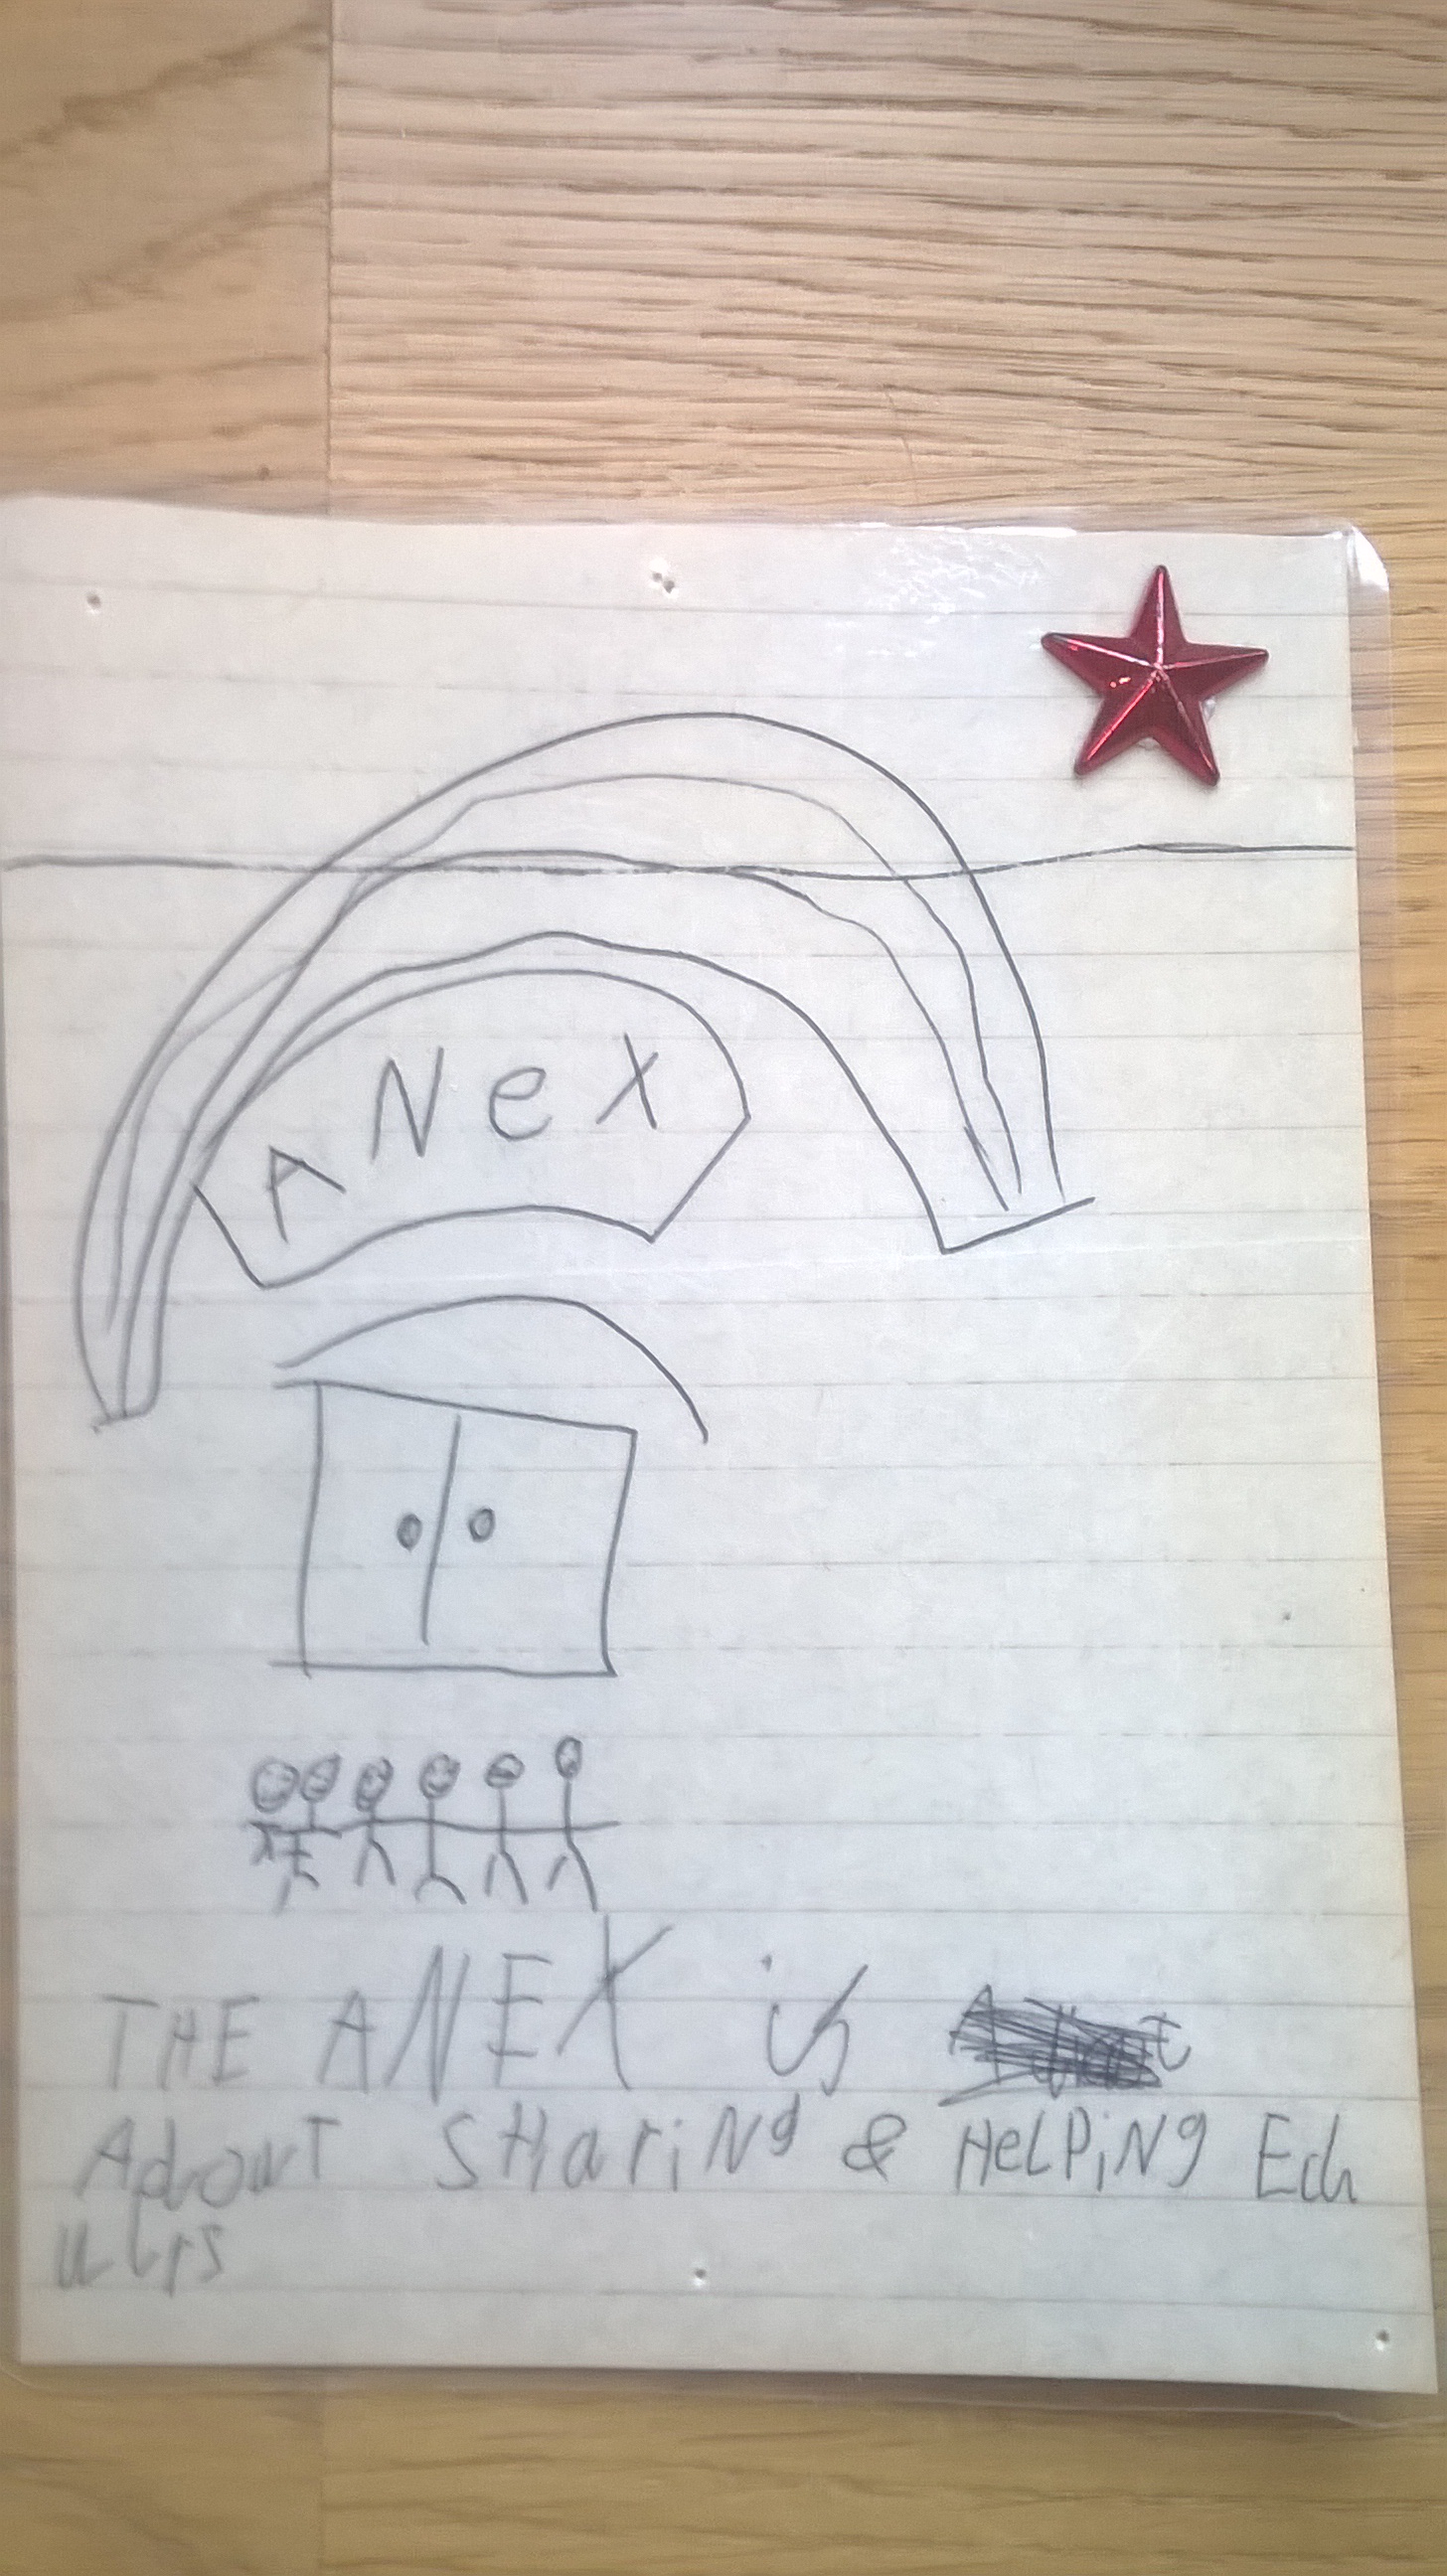 ANex
THE ANEX is
About SHariNg & HeLPiNg Ech